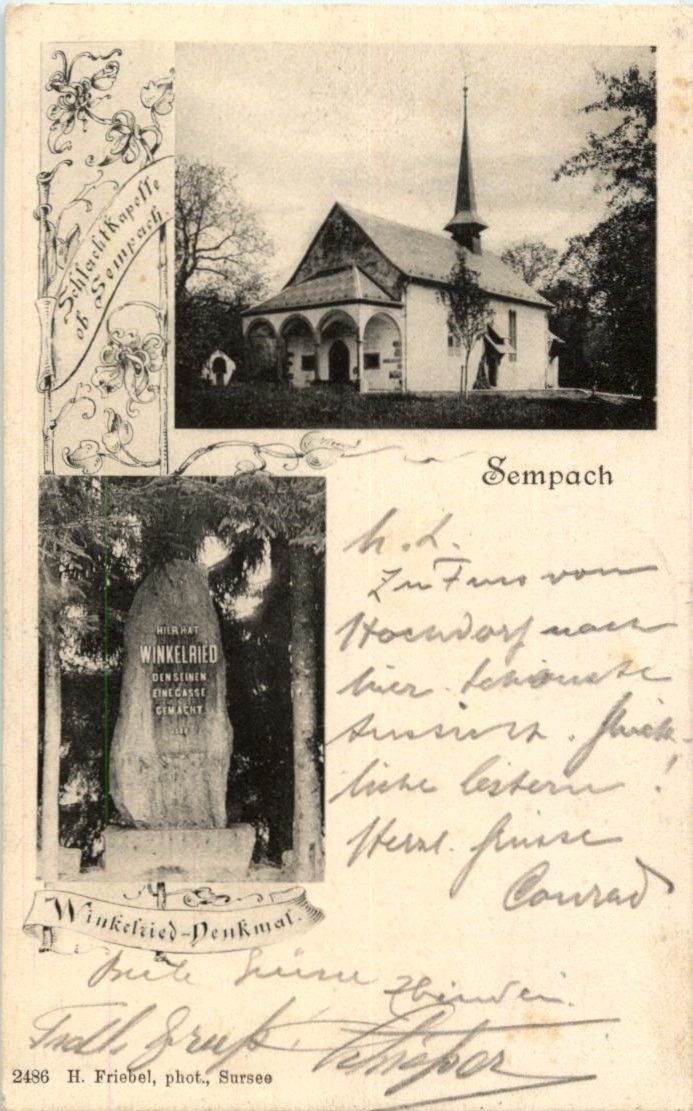 Schlachtkapelle
ob Sempach
Sempach
HIER HAT
WINKELRIED
DEN SEINEN
EINE GASSE
GEMACHT
Winkelried-Denkmal.
Zu Fuss von
Hochdorf nach
hier. Schönste
Aussicht. Glück-
liche Ostern!
Herzl. Grüsse
Conrad
Beste Grüsse
Gruß
2486 H. Friebel, phot., Sursee